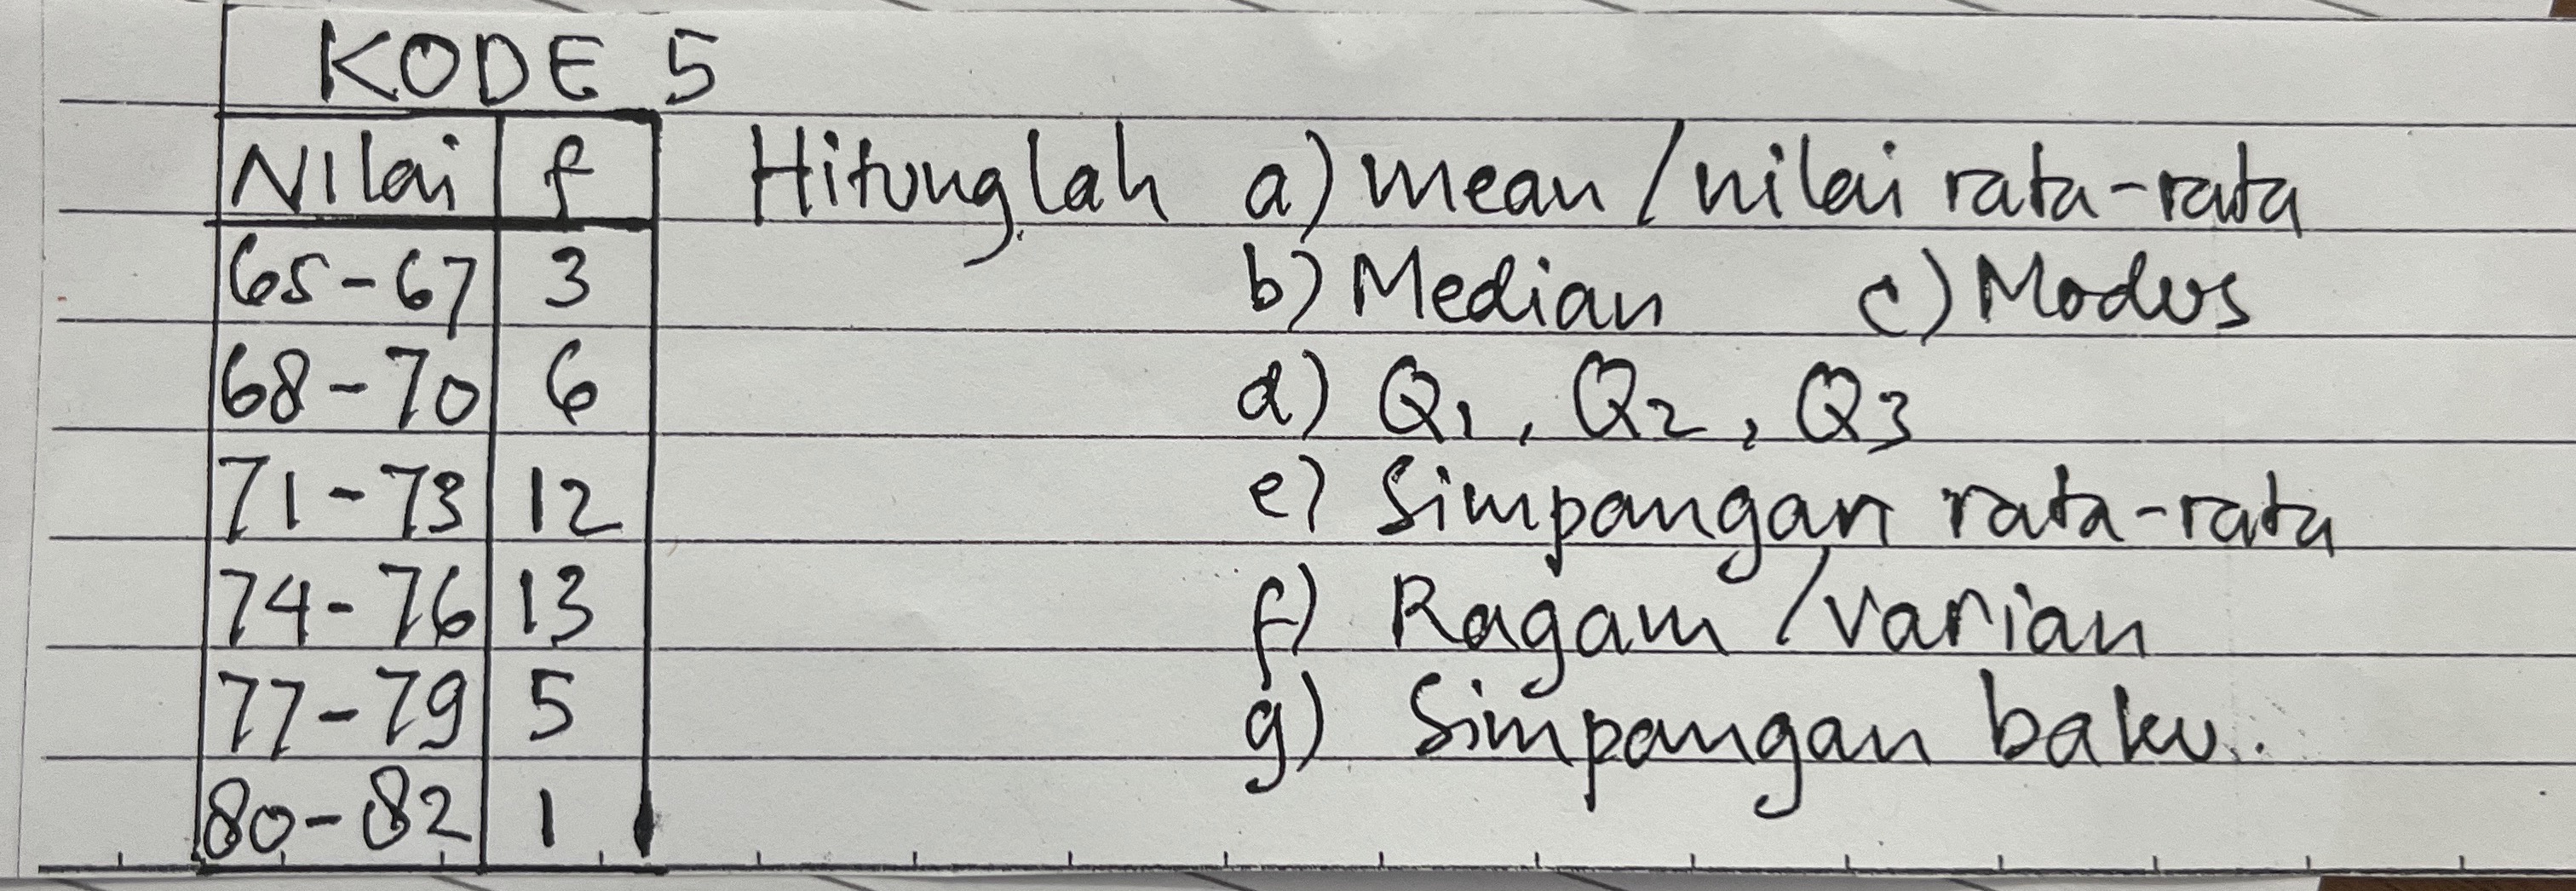 KODE 5
Nilai f Hitunglah a) mean/nilai rata-rata
65-67 3 b) Median c) Modus
68-70 6 d) Q1, Q2, Q3
71-73 12 e) Simpangan rata-rata
74-76 13 f) Ragam/varian
77-79 5 g) Simpangan baku.
80-82 1